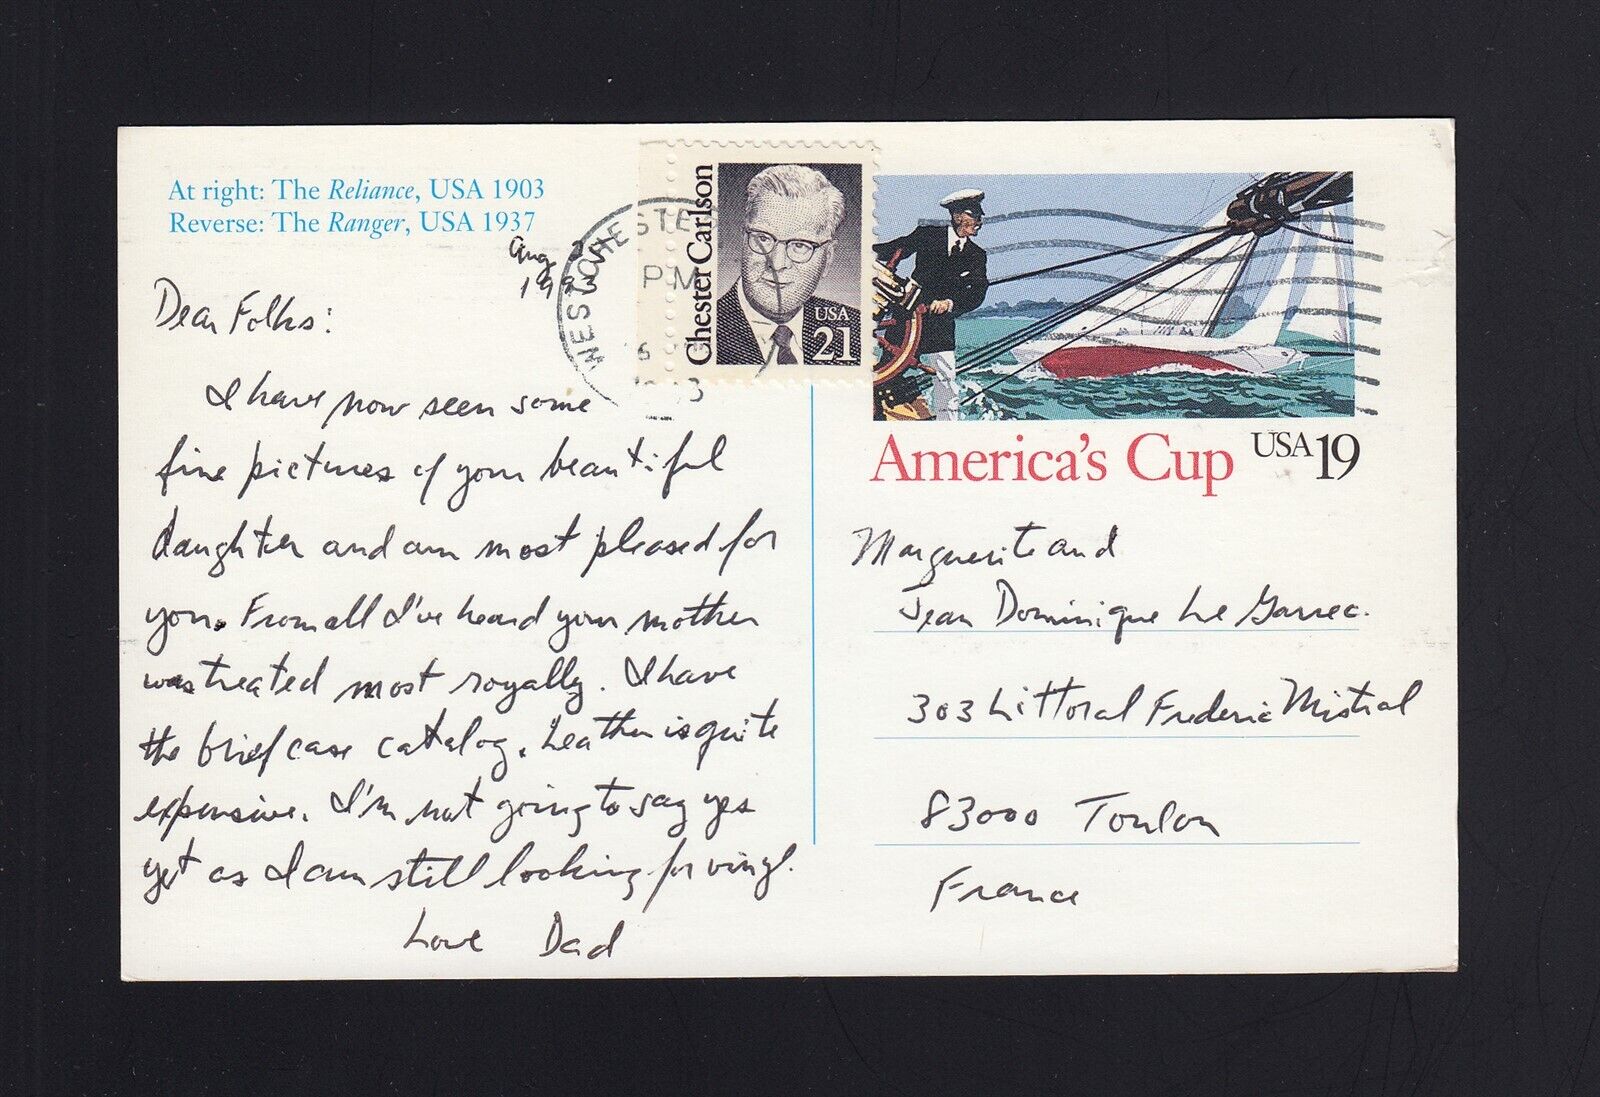 At right: The Reliance, USA 1903
Reverse: The Ranger, USA 1937
Aug
1993
Dear Folks:
I have now seen some
fine pictures of your beautiful
daughter and am most pleased for
you. From all I've heard your mother
was treated most royally. I have
the brief case catalog. Leather is quite
expensive. I'm not going to say yes
yet as I am still looking for vinyl.
Love Dad
WESTCHESTE
PM
Chester Carlson
USA
21
America's Cup USA 19
Marguerite and
Jean Dominique Le Garrec.
303 Littoral Frederic Mistral
83000 Toulon
France